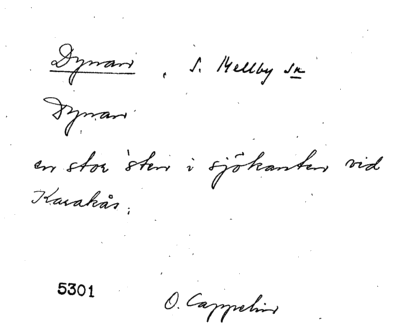 Dynan, S. Mellby sn
Dynan
en stor sten i sjökanten vid
Karakås.
5301
O. Cappelin